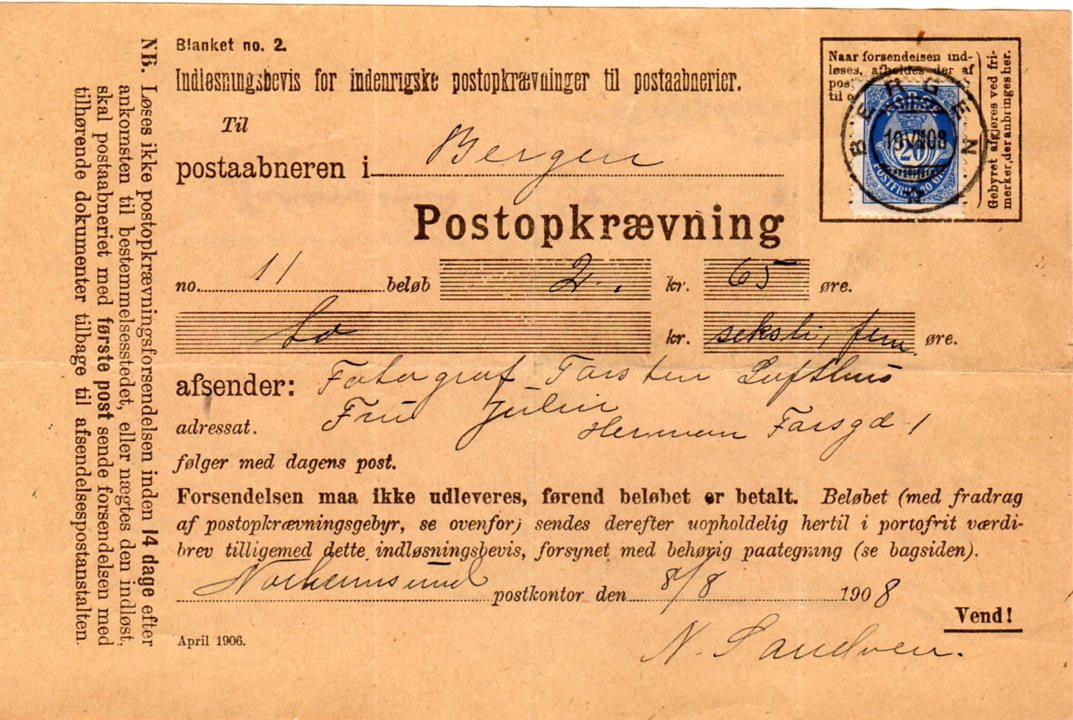 Blanket no. 2.
Indløsningsbevis for indenrigske postopkrævninger til postaabnerier.
Til
postaabneren i Bergen
Naar forsendelsen ind-
løses, afholdes der af
pos
til o
Gebyret afgjøres ved fri-
merker, der anbringes her.
NORGE
20
POSTFRIM. 20 ØRE
BERGEN
Postopkrævning
no. 11 beløb 2 kr. 65 øre.
to kr. seksti, fem øre.
afsender: Fotograf Torsten Lofthus
adressat. Fru
Herman Fossgd 1
følger med dagens post.
Forsendelsen maa ikke udleveres, førend beløbet er betalt. Beløbet (med fradrag
af postopkrævningsgebyr, se ovenfor) sendes derefter uopholdelig hertil i portofrit værdi-
brev tilligemed dette indløsningsbevis, forsynet med behørig paategning (se bagsiden).
Norheimsund postkontor den 8/8 1908
Vend!
April 1906.
N. Sandven.
NB. Løses ikke postopkrævningsforsendelsen inden 14 dage efter
ankomsten til bestemmelsesstedet, eller nægtes den indløst,
skal postaabneriet med første post sende forsendelsen med
tilhørende dokumenter tilbage til afsendelsespostanstalten.